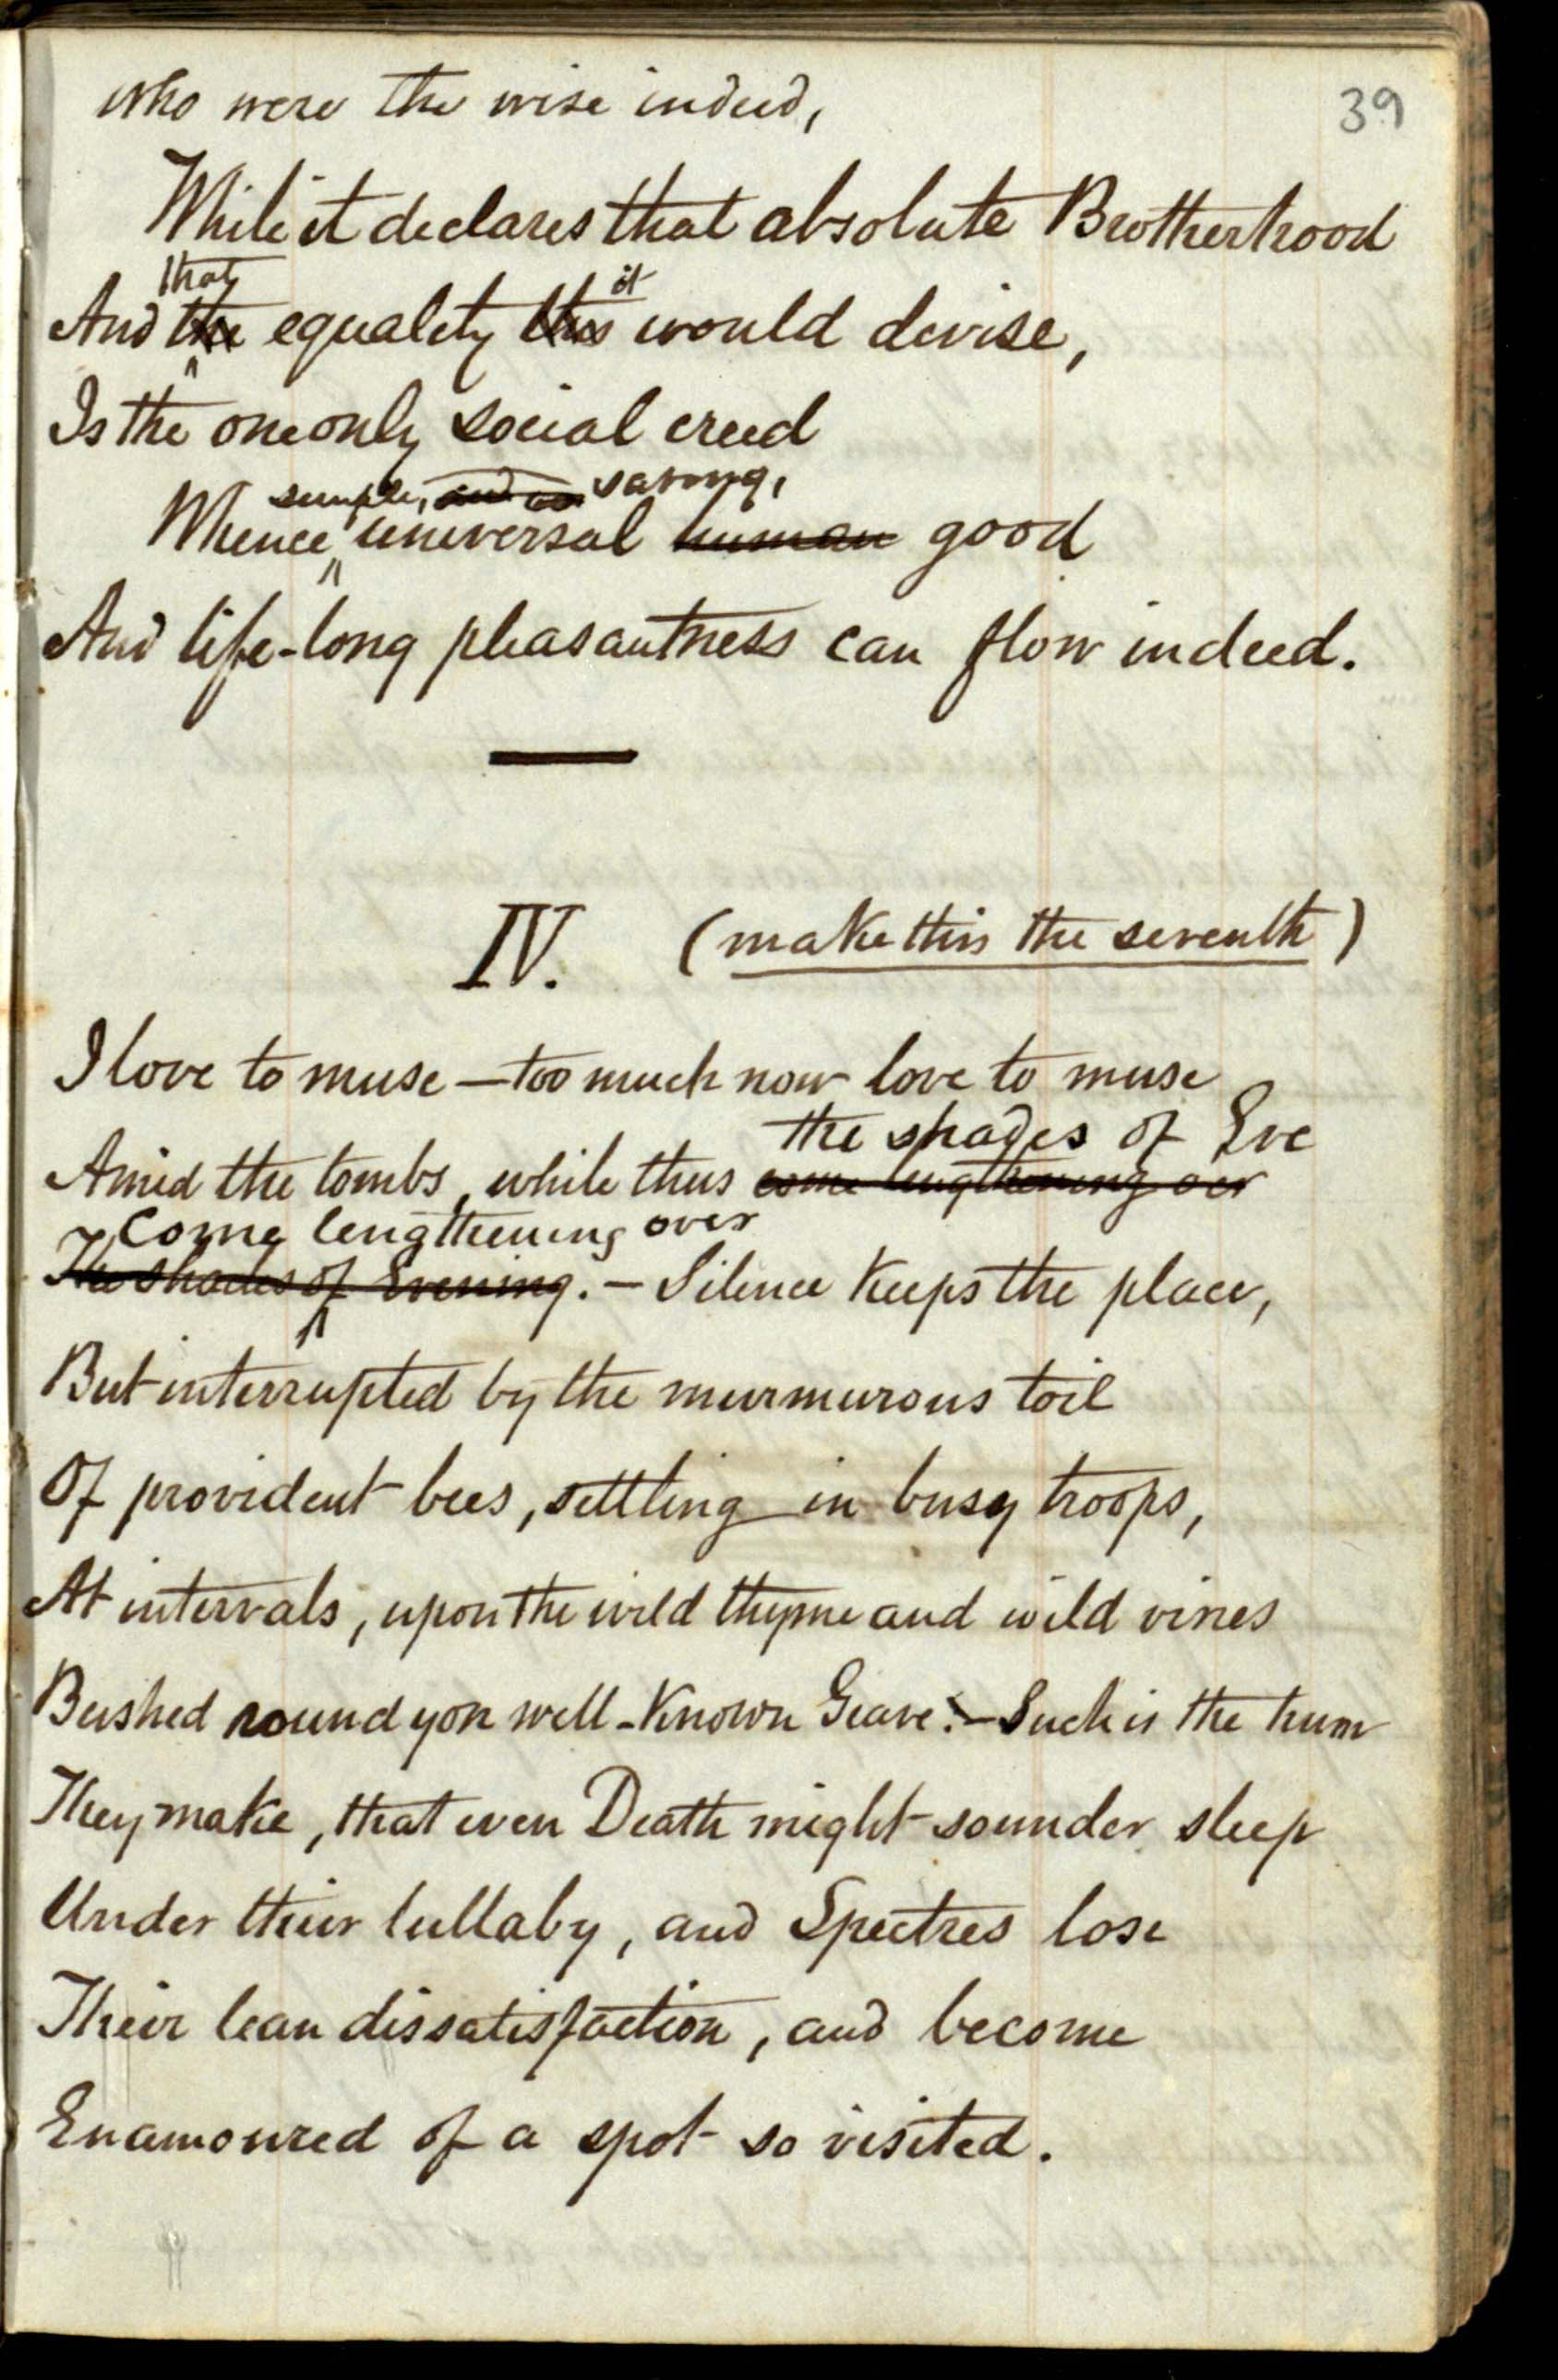 39
who were the wise indeed,
While it declares that absolute Brotherhood
that it
And the equality this would devise,
Is the one only social creed
simple, and strong,
Whence universal human good
And life-long pleasantness can flow indeed.
IV. (make this the seventh)
I love to muse — too much now love to muse
the shades of Eve
Amid the tombs, while thus come lengthening oer
Come lengthening over
The shades of Evening. — Silence keeps the place,
But interrupted by the murmurous toil
Of provident bees, settling in busy troops,
At intervals, upon the wild thyme and wild vines
Bushed round yon well-known Grave: — Such is the hum
They make, that even Death might sounder sleep
Under their lullaby, and Spectres lose
Their lean dissatisfaction, and become
Enamoured of a spot so visited.